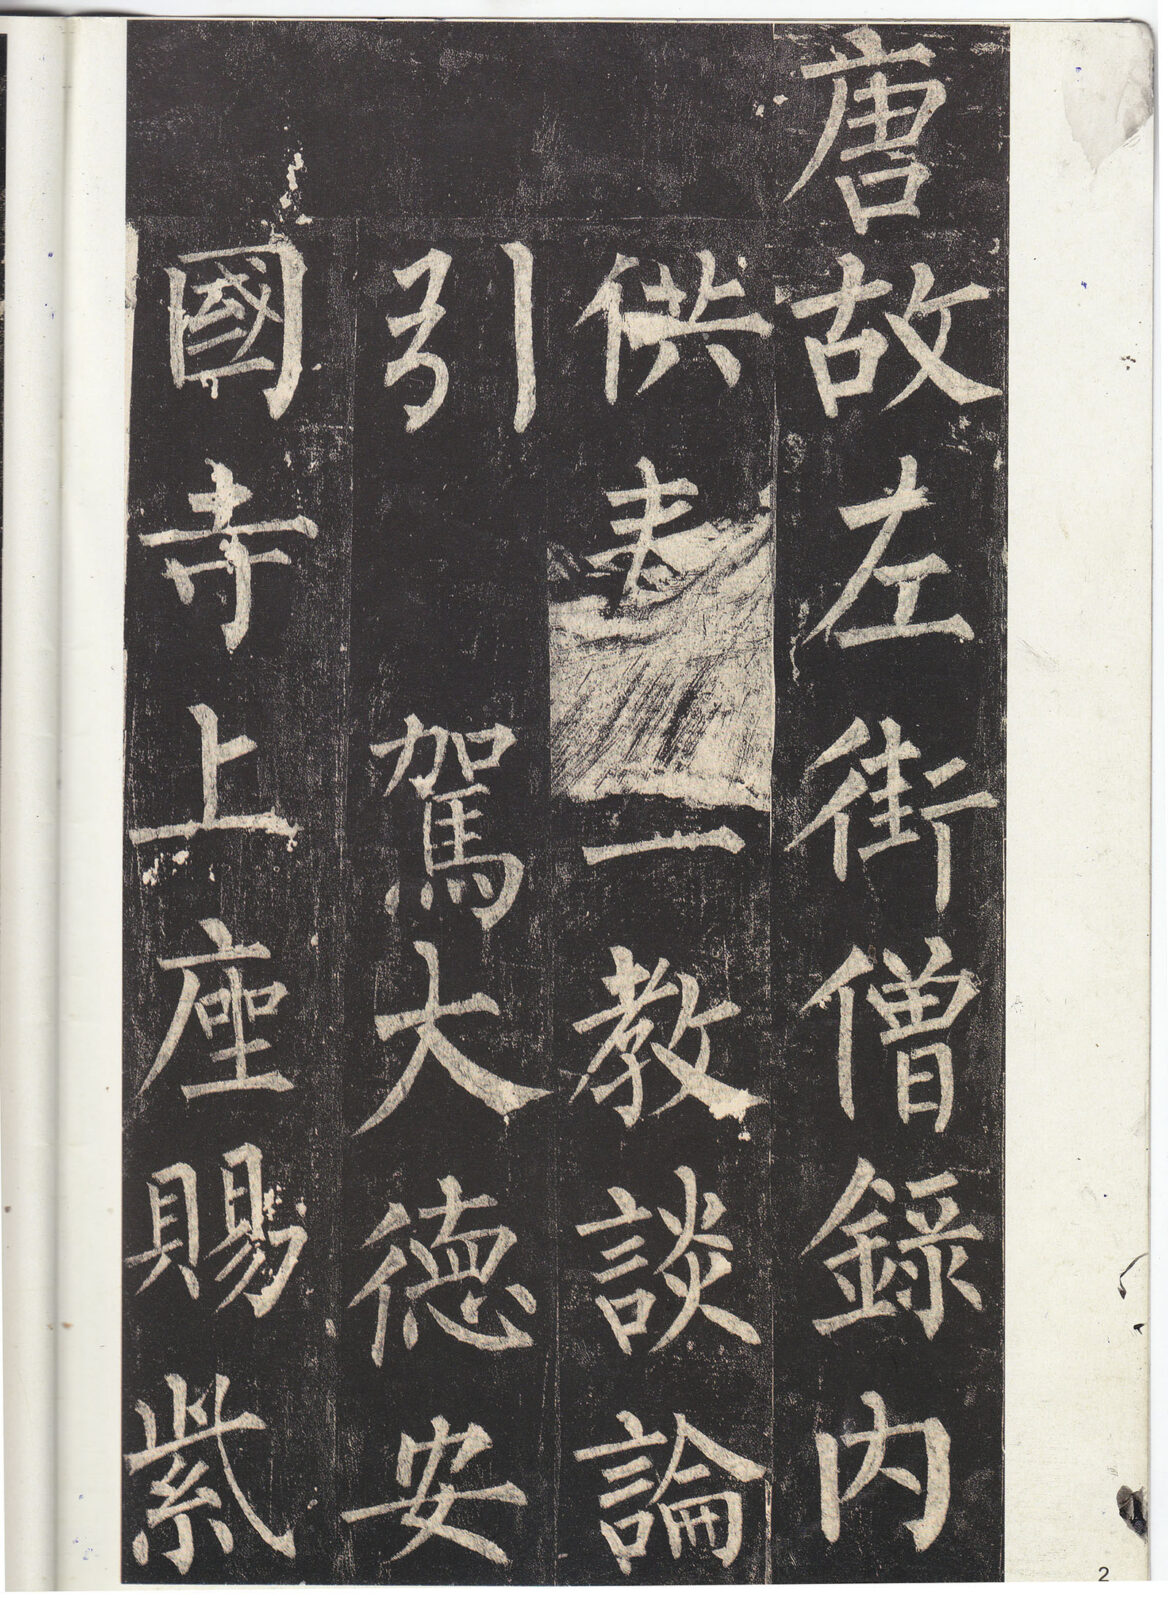 唐故左街僧錄內
供奉三教談論
引駕大德安
國寺上座賜紫
2